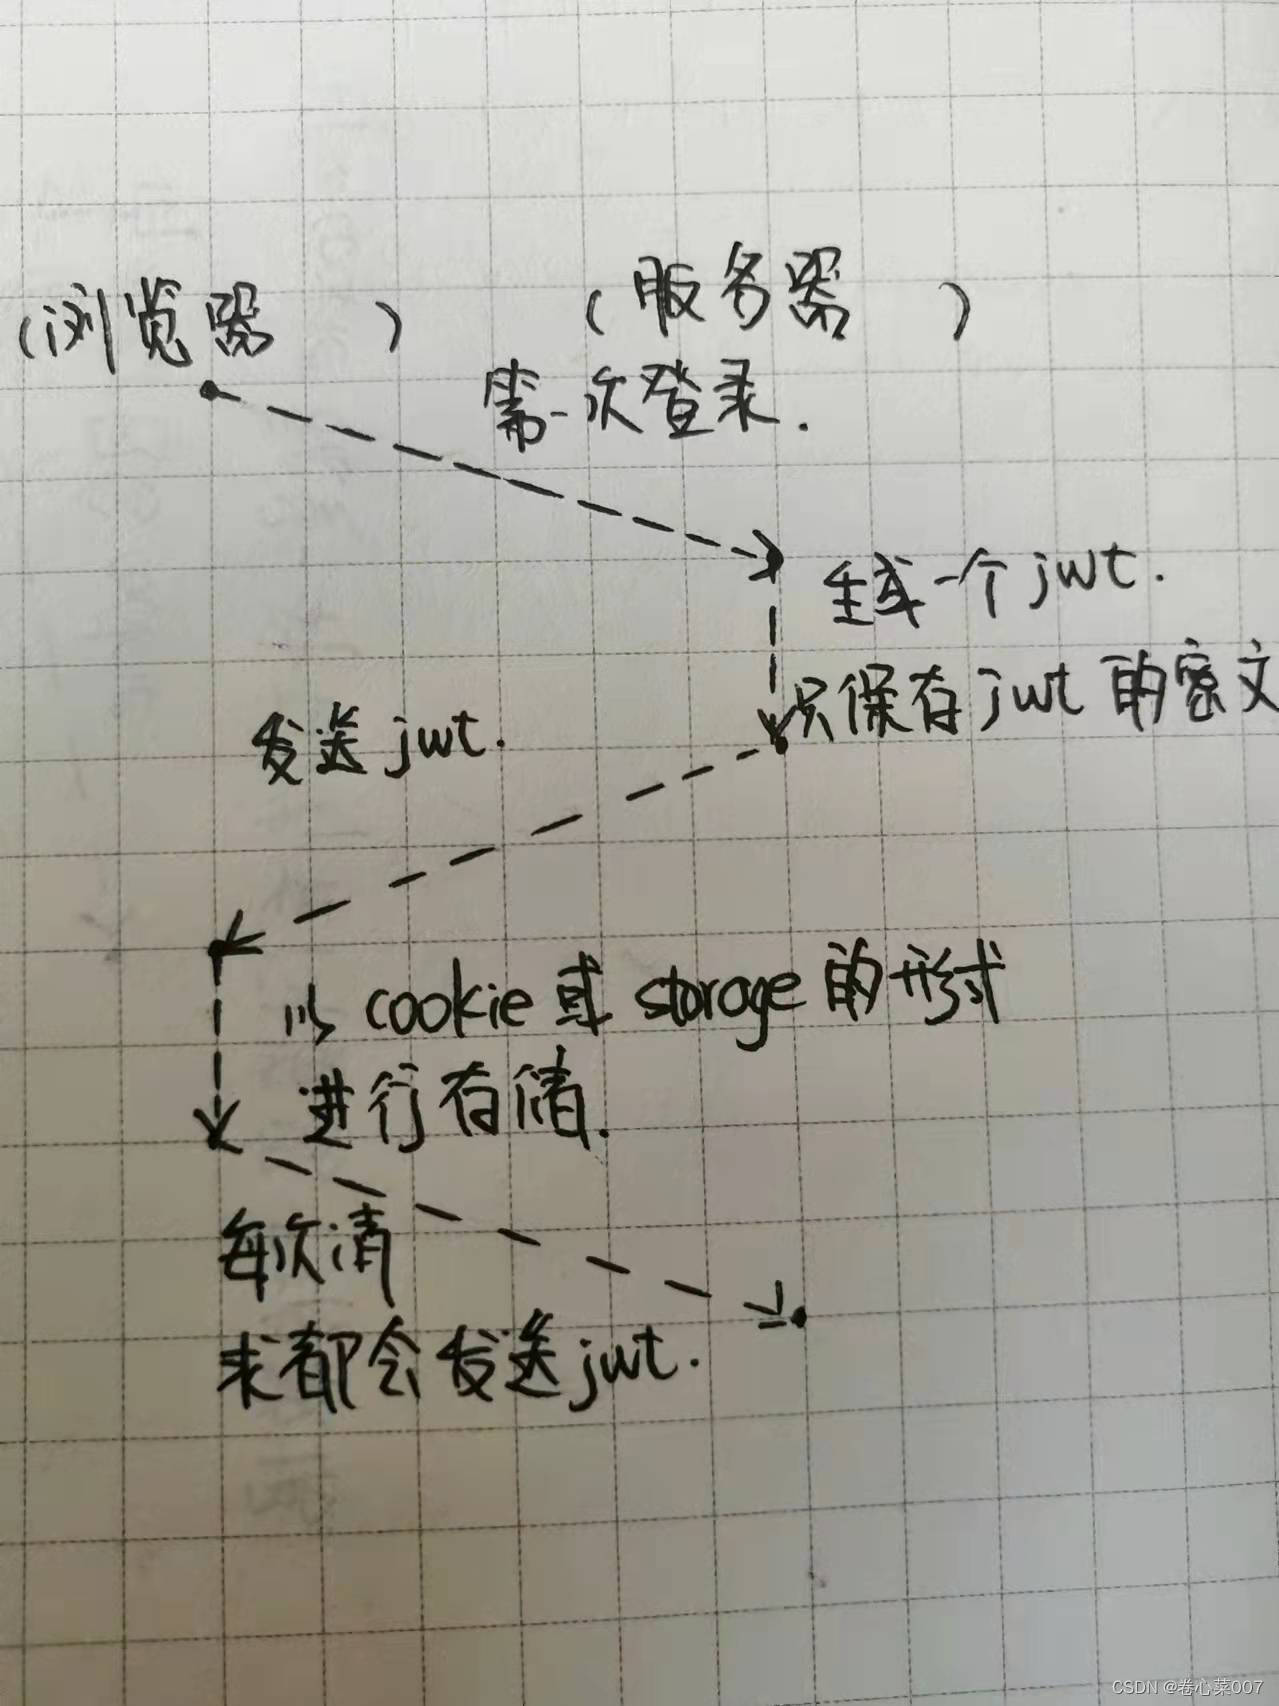 (浏览器 )
(服务器 )
第一次登录.
生成一个jwt.
只保存jwt的密文
发送jwt.
以cookie或storage的形式
进行存储.
每次请
求都会发送jwt.
CSDN @卷心菜007